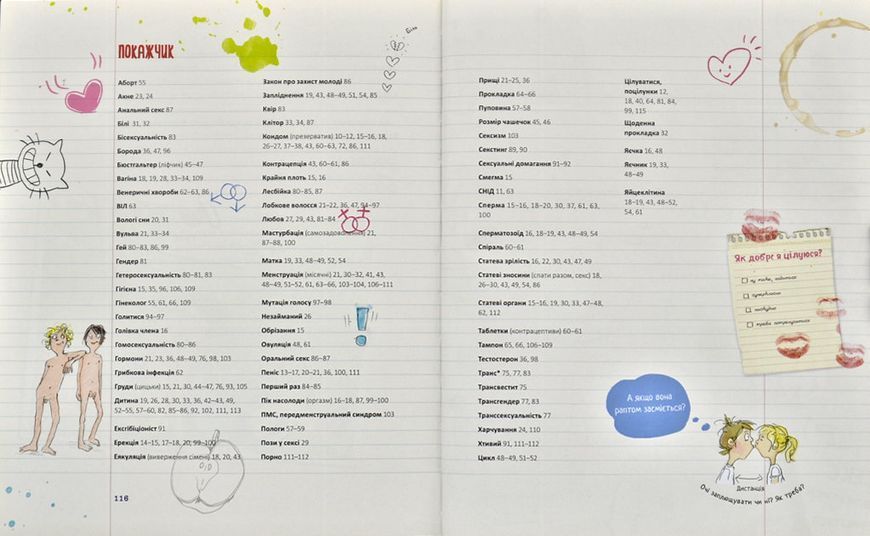 ПОКАЖЧИК
Аборт 55
Акне 23, 24
Анальний секс 87
Білі 31, 32
Бісексуальність 83
Борода 36, 47, 96
Бюстгальтер (ліфчик) 45–47
Вагіна 18, 19, 28, 33–34, 109
Венеричні хвороби 62–63, 86
ВІЛ 63
Вологі сни 20, 31
Вульва 21, 33–34
Гей 80–83, 86, 99
Гендер 81
Гетеросексуальність 80–81, 83
Гігієна 15, 35, 96, 106, 109
Гінеколог 55, 61, 66, 109
Голитися 94–97
Голівка члена 16
Гомосексуальність 80–86
Гормони 21, 23, 36, 48–49, 76, 98, 103
Грибкова інфекція 62
Груди (цицьки) 15, 21, 30, 44–47, 76, 93, 105
Дитина 19, 26, 28, 30, 33, 36, 42–43, 49,
52–55, 57–60, 82, 85–86, 92, 102, 111, 113
Ексгібіціоніст 91
Ерекція 14–15, 17–18, 20, 99–100
Еякуляція (виверження сімені) 18, 20, 43
116
Закон про захист молоді 86
Запліднення 19, 43, 48–49, 51, 54, 85
Квір 83
Клітор 33, 34, 87
Кондом (презерватив) 10–12, 15–16, 18,
26–27, 37–38, 43, 60–63, 72, 86, 111
Контрацепція 43, 60–61, 86
Крайня плоть 15, 16
Лесбійка 80–85, 87
Лобкове волосся 21–22, 36, 47, 94–97
Любов 27, 29, 43, 81–84
Мастурбація (самозадоволення) 21,
87–88, 100
Матка 19, 33, 48–49, 52, 54
Менструація (місячні) 21, 30–32, 41, 43,
48–49, 51–52, 61, 63–66, 103–104, 106–111
Мутація голосу 97–98
Незайманий 26
Обрізання 15
Овуляція 48, 61
Оральний секс 86–87
Пеніс 13–17, 20–21, 36, 100, 111
Перший раз 84–85
Пік насолоди (оргазм) 16–18, 87, 99–100
ПМС, передменструальний синдром 103
Пологи 57–59
Пози у сексі 29
Порно 111–112
Прищі 21–25, 36
Прокладка 64–66
Пуповина 57–58
Розмір чашечок 45, 46
Сексизм 103
Секстинг 89, 90
Сексуальні домагання 91–92
Смегма 15
СНІД 11, 63
Сперма 15–16, 18–20, 30, 37, 61, 63,
100
Сперматозоїд 16, 18–19, 43, 48–49, 54
Спіраль 60–61
Статева зрілість 16, 22, 30, 43, 47, 49
Статеві зносини (спати разом, секс) 18,
26–30, 43, 49, 54, 86
Статеві органи 15–16, 19, 30, 33, 47–48,
62, 112
Таблетки (контрацептиви) 60–61
Тампон 65, 66, 106–109
Тестостерон 36, 98
Транс* 75, 77, 83
Трансвестит 75
Трансгендер 77, 83
Транссексуальність 77
Харчування 24, 110
Хтивий 91, 111–112
Цикл 48–49, 51–52
Цілуватися,
поцілунки 12,
18, 40, 64, 81, 84,
99, 115
Щоденна
прокладка 32
Яєчка 16, 48
Яєчник 19, 33,
48–49
Яйцеклітина
18–19, 43, 48–52,
54, 61
Як добре я цілуюся?
А якщо вона
раптом засміється?
Дистанція
Очі заплющувати чи ні? Як треба?